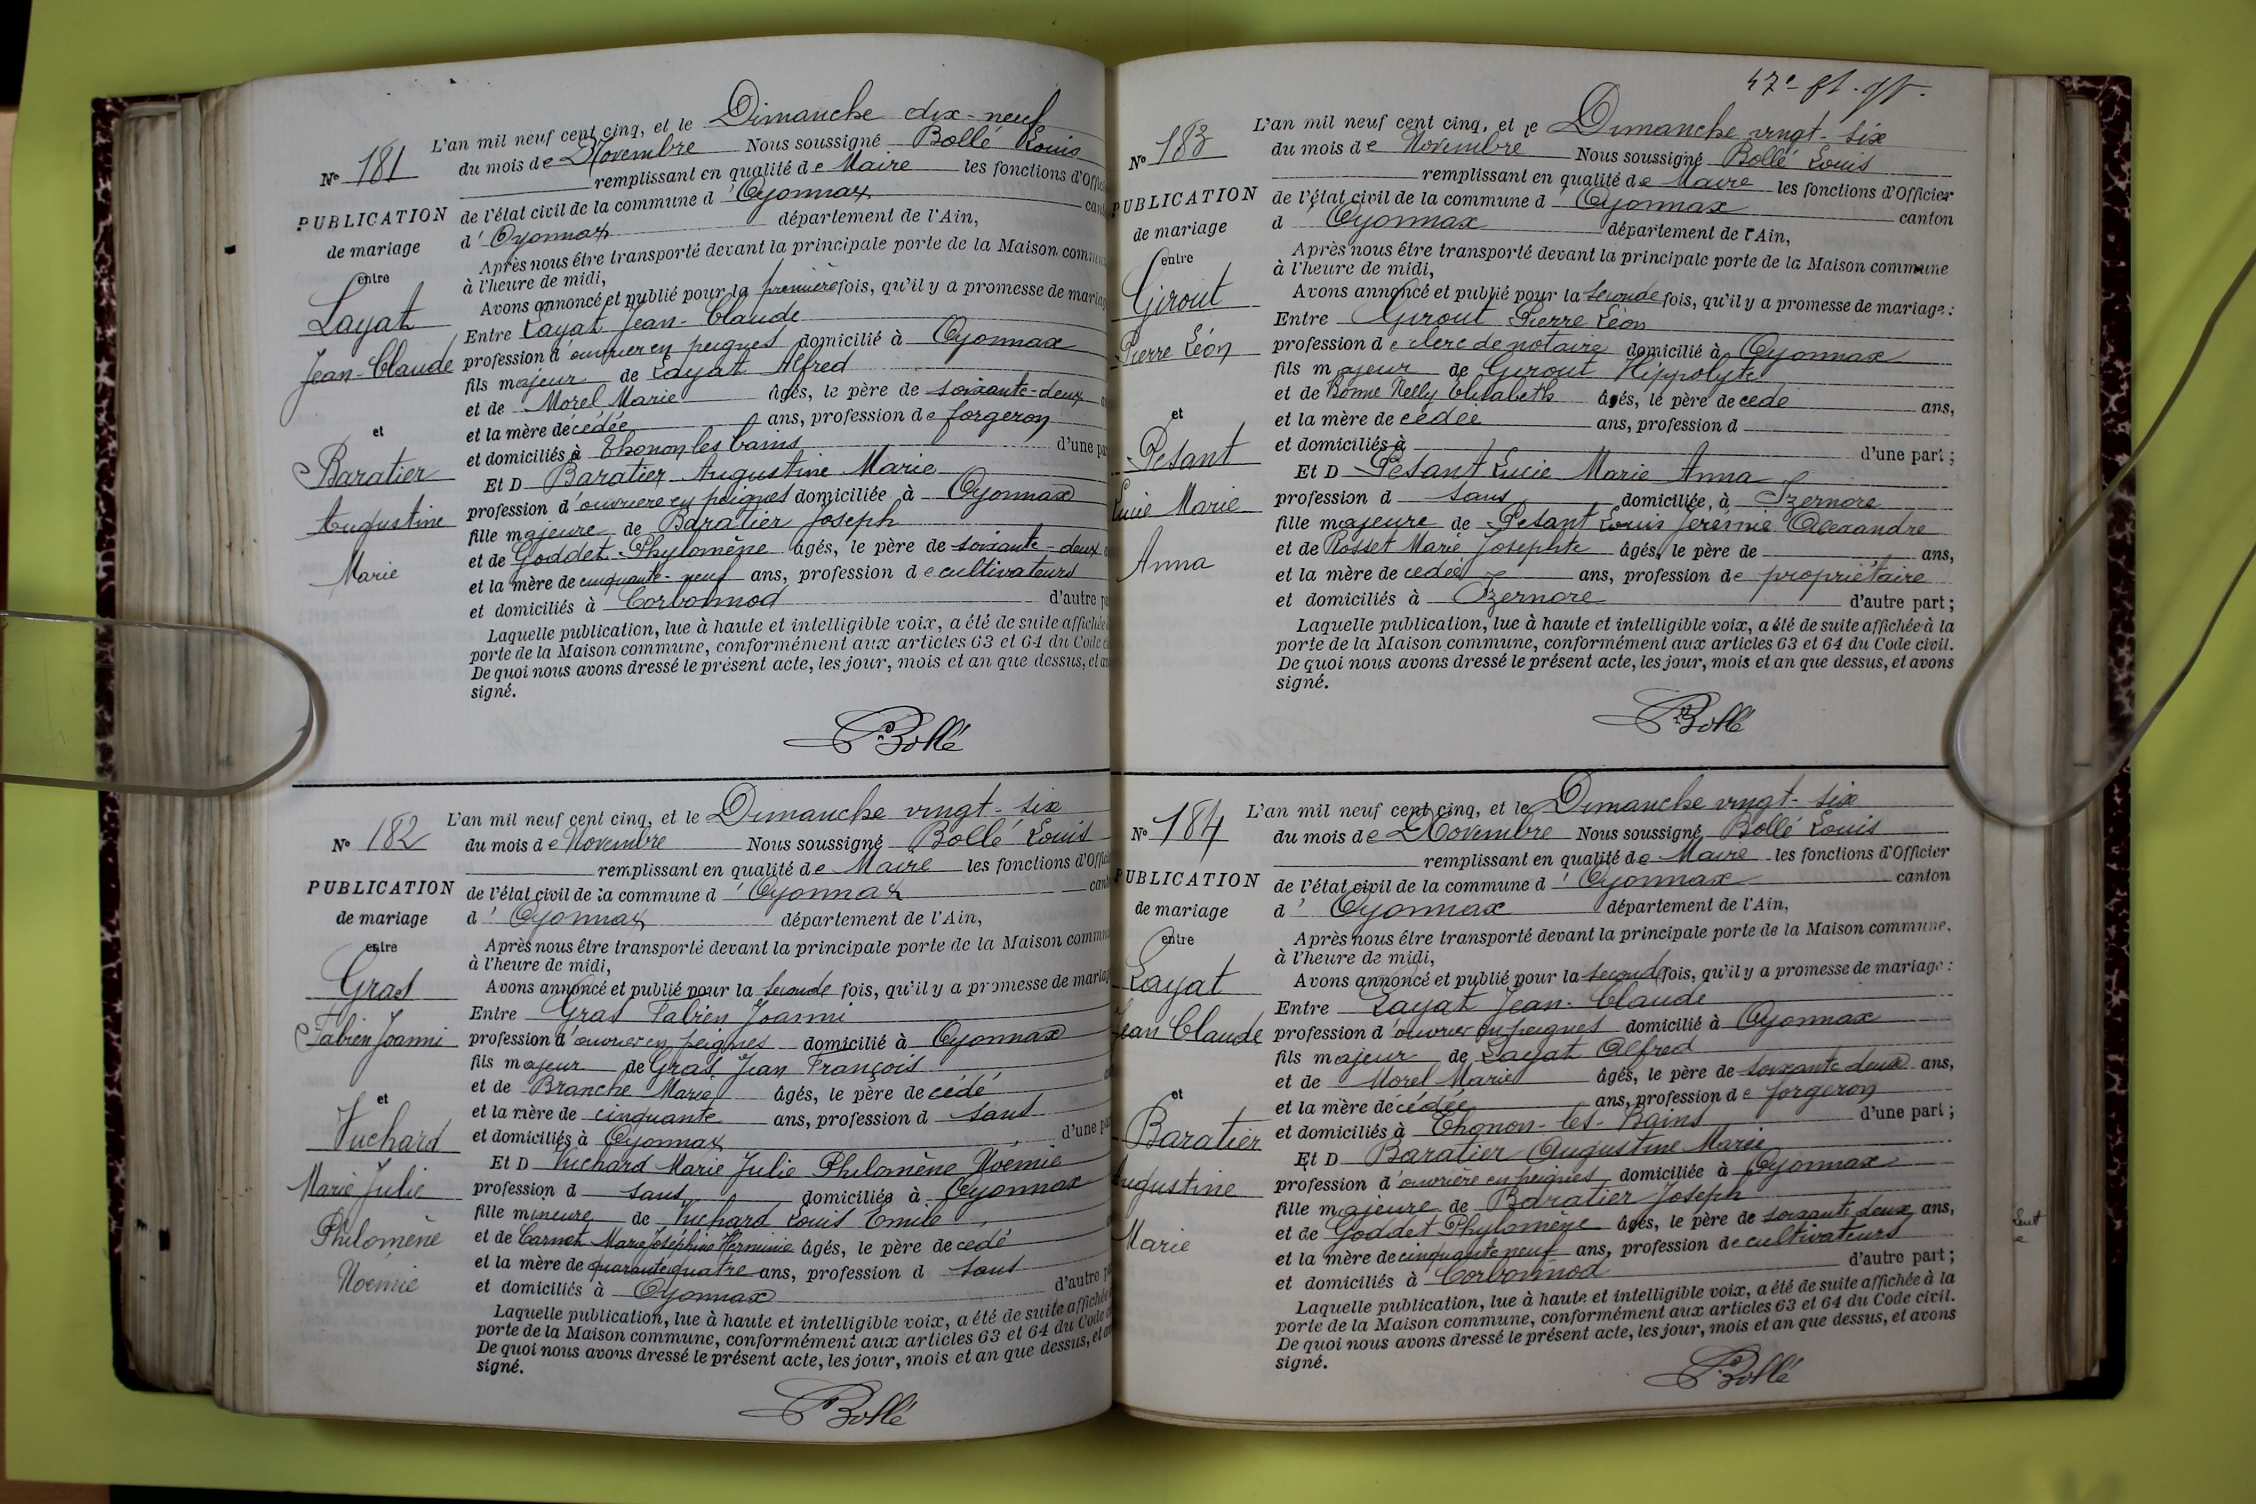 L'an mil neuf cent cinq, et le Dimanche dix-neuf
Nº 181
du mois de Novembre Nous soussigné Bollé Louis
remplissant en qualité de Maire les fonctions d'Offici
PUBLICATION
de l'état civil de la commune d'Oyonnax cant
de mariage
d'Oyonnax département de l'Ain,
entre
Après nous être transporté devant la principale porte de la Maison commun
à l'heure de midi,
Layat
Avons annoncé et publié pour la première fois, qu'il y a promesse de mariag
Jean-Claude
Entre Layat Jean-Claude
profession d'ouvrier en peignes domicilié à Oyonnax
fils majeur de Layat Alfred
et de Morel Marie âgés, le père de soixante-deux
et
et la mère décédée ans, profession de forgeron
et domiciliés à Thonon les bains d'une par
Baratier
Et D Baratier Augustine Marie
Augustine
profession d'ouvrière en peignes domiciliée à Oyonnax
fille majeure de Baratier Joseph
Marie
et de Goddet Phylomène âgés, le père de soixante-deux
et la mère de cinquante-neuf ans, profession de cultivateurs
et domiciliés à Corbonnod d'autre p
Laquelle publication, lue à haute et intelligible voix, a été de suite affichée
porte de la Maison commune, conformément aux articles 63 et 64 du Code c
De quoi nous avons dressé le présent acte, les jour, mois et an que dessus, et av
signé.
Bollé
L'an mil neuf cent cinq, et le Dimanche vingt-six
Nº 182
du mois de Novembre Nous soussigné Bollé Louis
remplissant en qualité de Maire les fonctions d'Offici
PUBLICATION
de l'état civil de la commune d'Oyonnax cant
de mariage
d'Oyonnax département de l'Ain,
entre
Après nous être transporté devant la principale porte de la Maison commun
à l'heure de midi,
Gras
Avons annoncé et publié pour la seconde fois, qu'il y a promesse de mariag
Fabien Joanni
Entre Gras Fabien Joanni
profession d'ouvrier en peignes domicilié à Oyonnax
fils majeur de Gras Jean François
et de Branche Marie âgés, le père decédé
et
et la mère de cinquante ans, profession d sans
Vuchard
et domiciliés à Oyonnax d'une par
Et D Vuchard Marie Julie Philomène Noémie
Marie Julie
profession d sans domiciliée à Oyonnax
Philomène
fille mineure de Vuchard Louis Emile
et de Carnot Marie Joséphine Herminie âgés, le père decedé
Noémie
et la mère de quarante quatre ans, profession d sans
et domiciliés à Oyonnax d'autre p
Laquelle publication, lue à haute et intelligible voix, a été de suite affichée
porte de la Maison commune, conformément aux articles 63 et 64 du Code c
De quoi nous avons dressé le présent acte, les jour, mois et an que dessus, et av
signé.
Bollé
47e
L'an mil neuf cent cinq, et le Dimanche vingt-six
Nº 183
du mois de Novembre Nous soussigné Bollé Louis
remplissant en qualité de Maire les fonctions d'Officier
PUBLICATION
de l'état civil de la commune d'Oyonnax canton
de mariage
d Oyonnax département de l'Ain,
entre
Après nous être transporté devant la principale porte de la Maison commune
à l'heure de midi,
Girout
Avons annoncé et publié pour la seconde fois, qu'il y a promesse de mariage :
Pierre Léon
Entre Girout Pierre Léon
profession de clerc de notaire domicilié à Oyonnax
fils majeur de Girout Hippolyte
et de Bonne Nelly Elisabeth âgés, le père decedé ans,
et
et la mère de cedée ans, profession d
et domiciliés à d'une part ;
Pesant
Et D Pesant Lucie Marie Anna
Lucie Marie
profession d sans domiciliée, à Izernore
fille majeure de Pesant Louis Jérémie Alexandre
Anna
et de Rosset Marie Josephte âgés, le père de ans,
et la mère de cedée ans, profession de propriétaire
et domiciliés à Izernore d'autre part ;
Laquelle publication, lue à haute et intelligible voix, a été de suite affichée à la
porte de la Maison commune, conformément aux articles 63 et 64 du Code civil.
De quoi nous avons dressé le présent acte, les jour, mois et an que dessus, et avons
signé.
Bollé
L'an mil neuf cent cinq, et le Dimanche vingt-six
Nº 184
du mois de Novembre Nous soussigné Bollé Louis
remplissant en qualité de Maire les fonctions d'Officier
PUBLICATION
de l'état civil de la commune d'Oyonnax canton
de mariage
d'Oyonnax département de l'Ain,
entre
Après nous être transporté devant la principale porte de la Maison commune.
à l'heure de midi,
Layat
Avons annoncé et publié pour la seconde fois, qu'il y a promesse de mariage :
Jean Claude
Entre Layat Jean-Claude
profession d'ouvrier en peignes domicilié à Oyonnax
fils majeur de Layat Alfred
et de Morel Marie âgés, le père de soixante deux ans,
et
et la mère décédée ans, profession de forgeron
Baratier
et domiciliés à Thonon-les-Bains d'une part ;
Et D Baratier Augustine Marie
Augustine
profession d'ouvrière en peignes domiciliée à Oyonnax
fille majeure de Baratier Joseph
Marie
et de Goddet Phylomène âgés, le père de soixante deux ans,
et la mère de cinquante neuf ans, profession de cultivateurs
et domiciliés à Corbonnod d'autre part ;
Laquelle publication, lue à haute et intelligible voix, a été de suite affichée à la
porte de la Maison commune, conformément aux articles 63 et 64 du Code civil.
De quoi nous avons dressé le présent acte, les jour, mois et an que dessus, et avons
signé.
Bollé